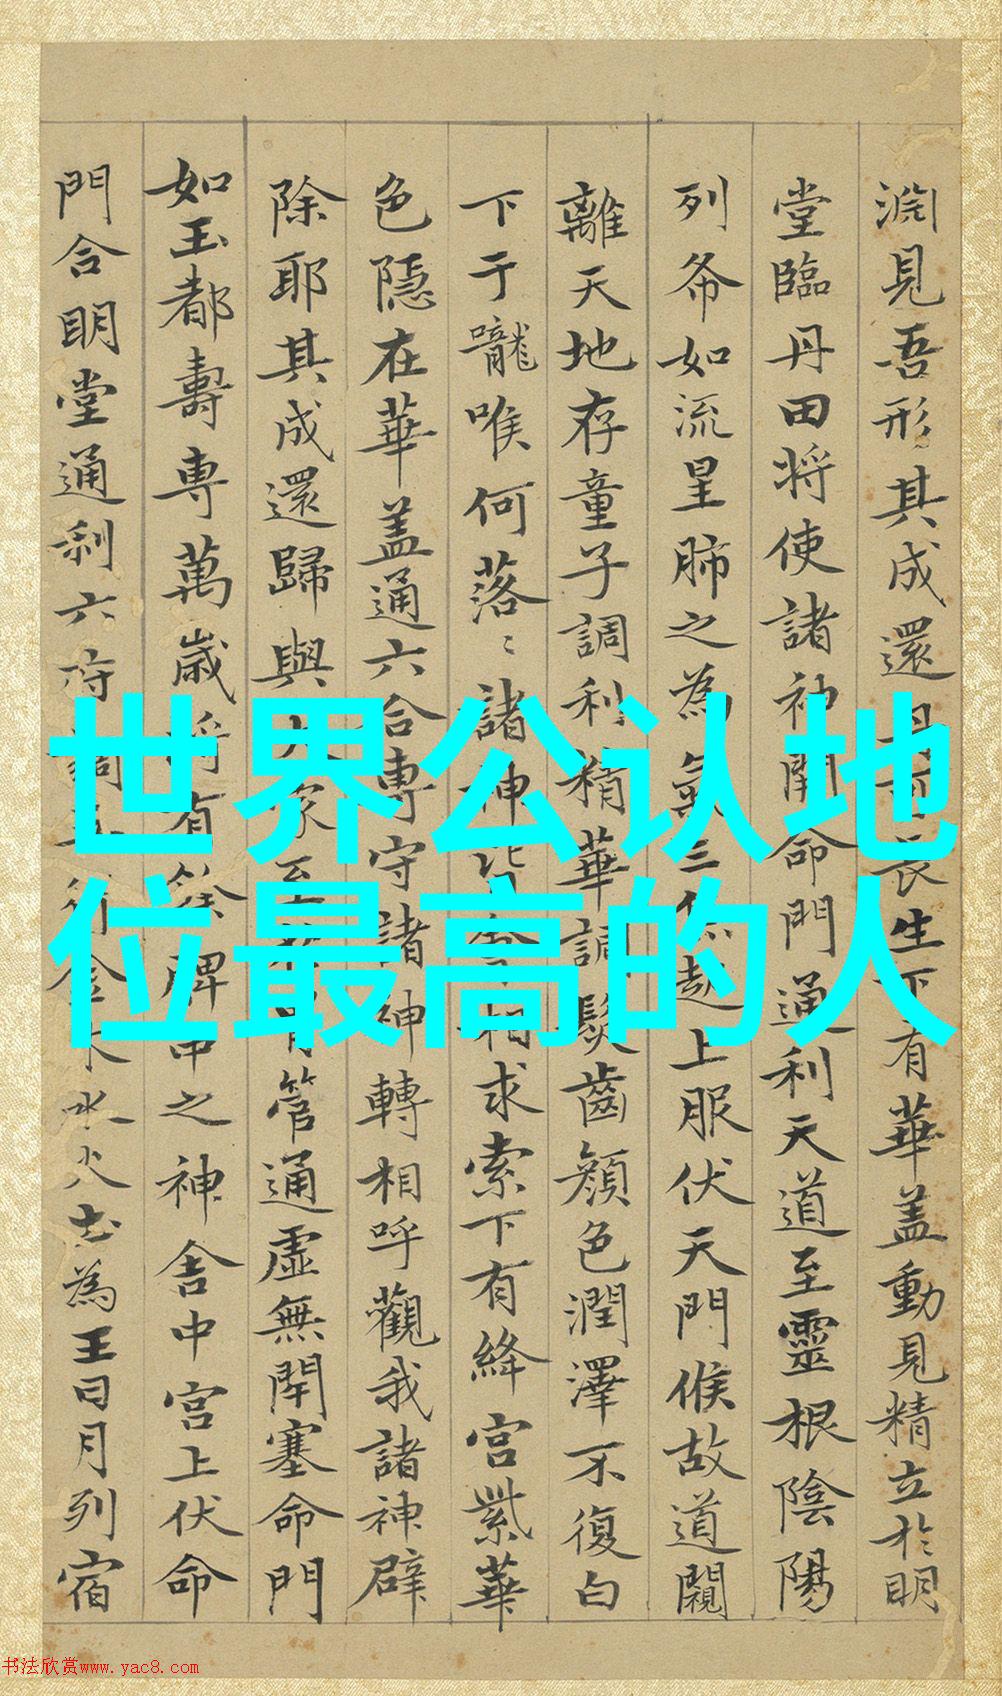 世界公认地
位最高的人
淵見吾形其成還丹可長生下有華盖動見精立於明
堂臨丹田将使諸神開命門通利天道至靈根陰陽
列布如流星肺之為氣三焦起上服伏天門候故道闚
離天地存童子調利精華調髮齒顔色潤澤不復白
下于嚨喉何落〻諸神皆會相求索下有絳宮紫華
色隱在華盖通六合專守諸神轉相呼觀我諸神辟
除耶其成還歸與大家至 管通虛無閉塞命門
如玉都壽専萬歲将有餘脾中之神舍中宮上伏命
門合明堂通利六府調五行金木水火土為王日月列宿
书法欣赏www.yac8.com